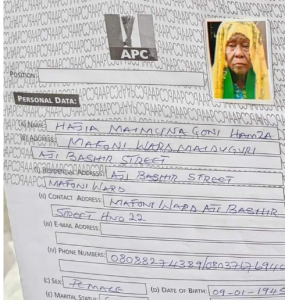 APC
POSITION:
PERSONAL DATA:
(i) NAME: HAJIA MAIMUNA GONI HAMZA
(ii) ADDRESS: MAFONI WARD MAIDUGURI
ALI BASHIR STREET
RESIDENTIAL ADDRESS: ALI BASHIR STREET
MAFONI WARD
(ii) CONTACT ADDRESS: MAFONI WARD ALI BASHIR
STREET HNO 22
(iii) E-MAIL ADDRESS:
(iv) PHONE NUMBERS:
(v) SEX: FEMALE (d) DATE OF BIRTH: 09-01-1945
(e) MARITAL STATUS: